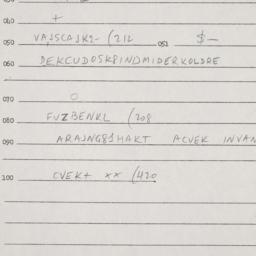 040 +
050 VAJSCAJKI- (212 051 $—
060 DEKCUDOSK8INDMIDERKOLDRE
070 O
080 FUZBENKL (208
090 ARAJNG81HAKT ACVEK INVAN
100 CVEK+ XX (420